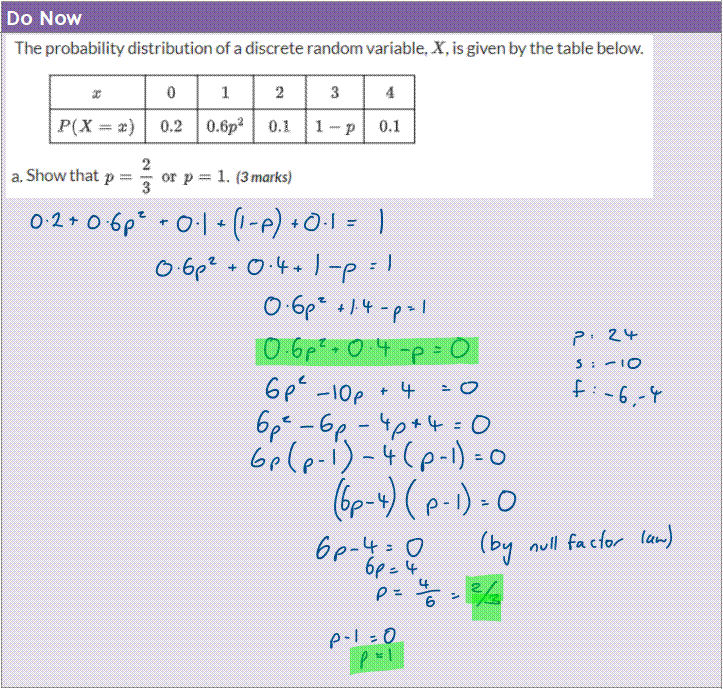 Do Now
The probability distribution of a discrete random variable, X, is given by the table below.
x 0 1 2 3 4
P(X = x) 0.2 0.6p² 0.1 1 − p 0.1
a. Show that p = 2/3 or p = 1. (3 marks)
0.2 + 0.6p² + 0.1 + (1-p) + 0.1 = 1
0.6p² + 0.4 + 1 - p = 1
0.6p² + 1.4 - p = 1
0.6p² + 0.4 - p = 0
p: 24
s: -10
f: -6, -4
6p² - 10p + 4 = 0
6p² - 6p - 4p + 4 = 0
6p(p-1) - 4(p-1) = 0
(6p-4)(p-1) = 0
6p-4 = 0 (by null factor law)
6p = 4
p = 4/6 = 2/3
p-1 = 0
p = 1